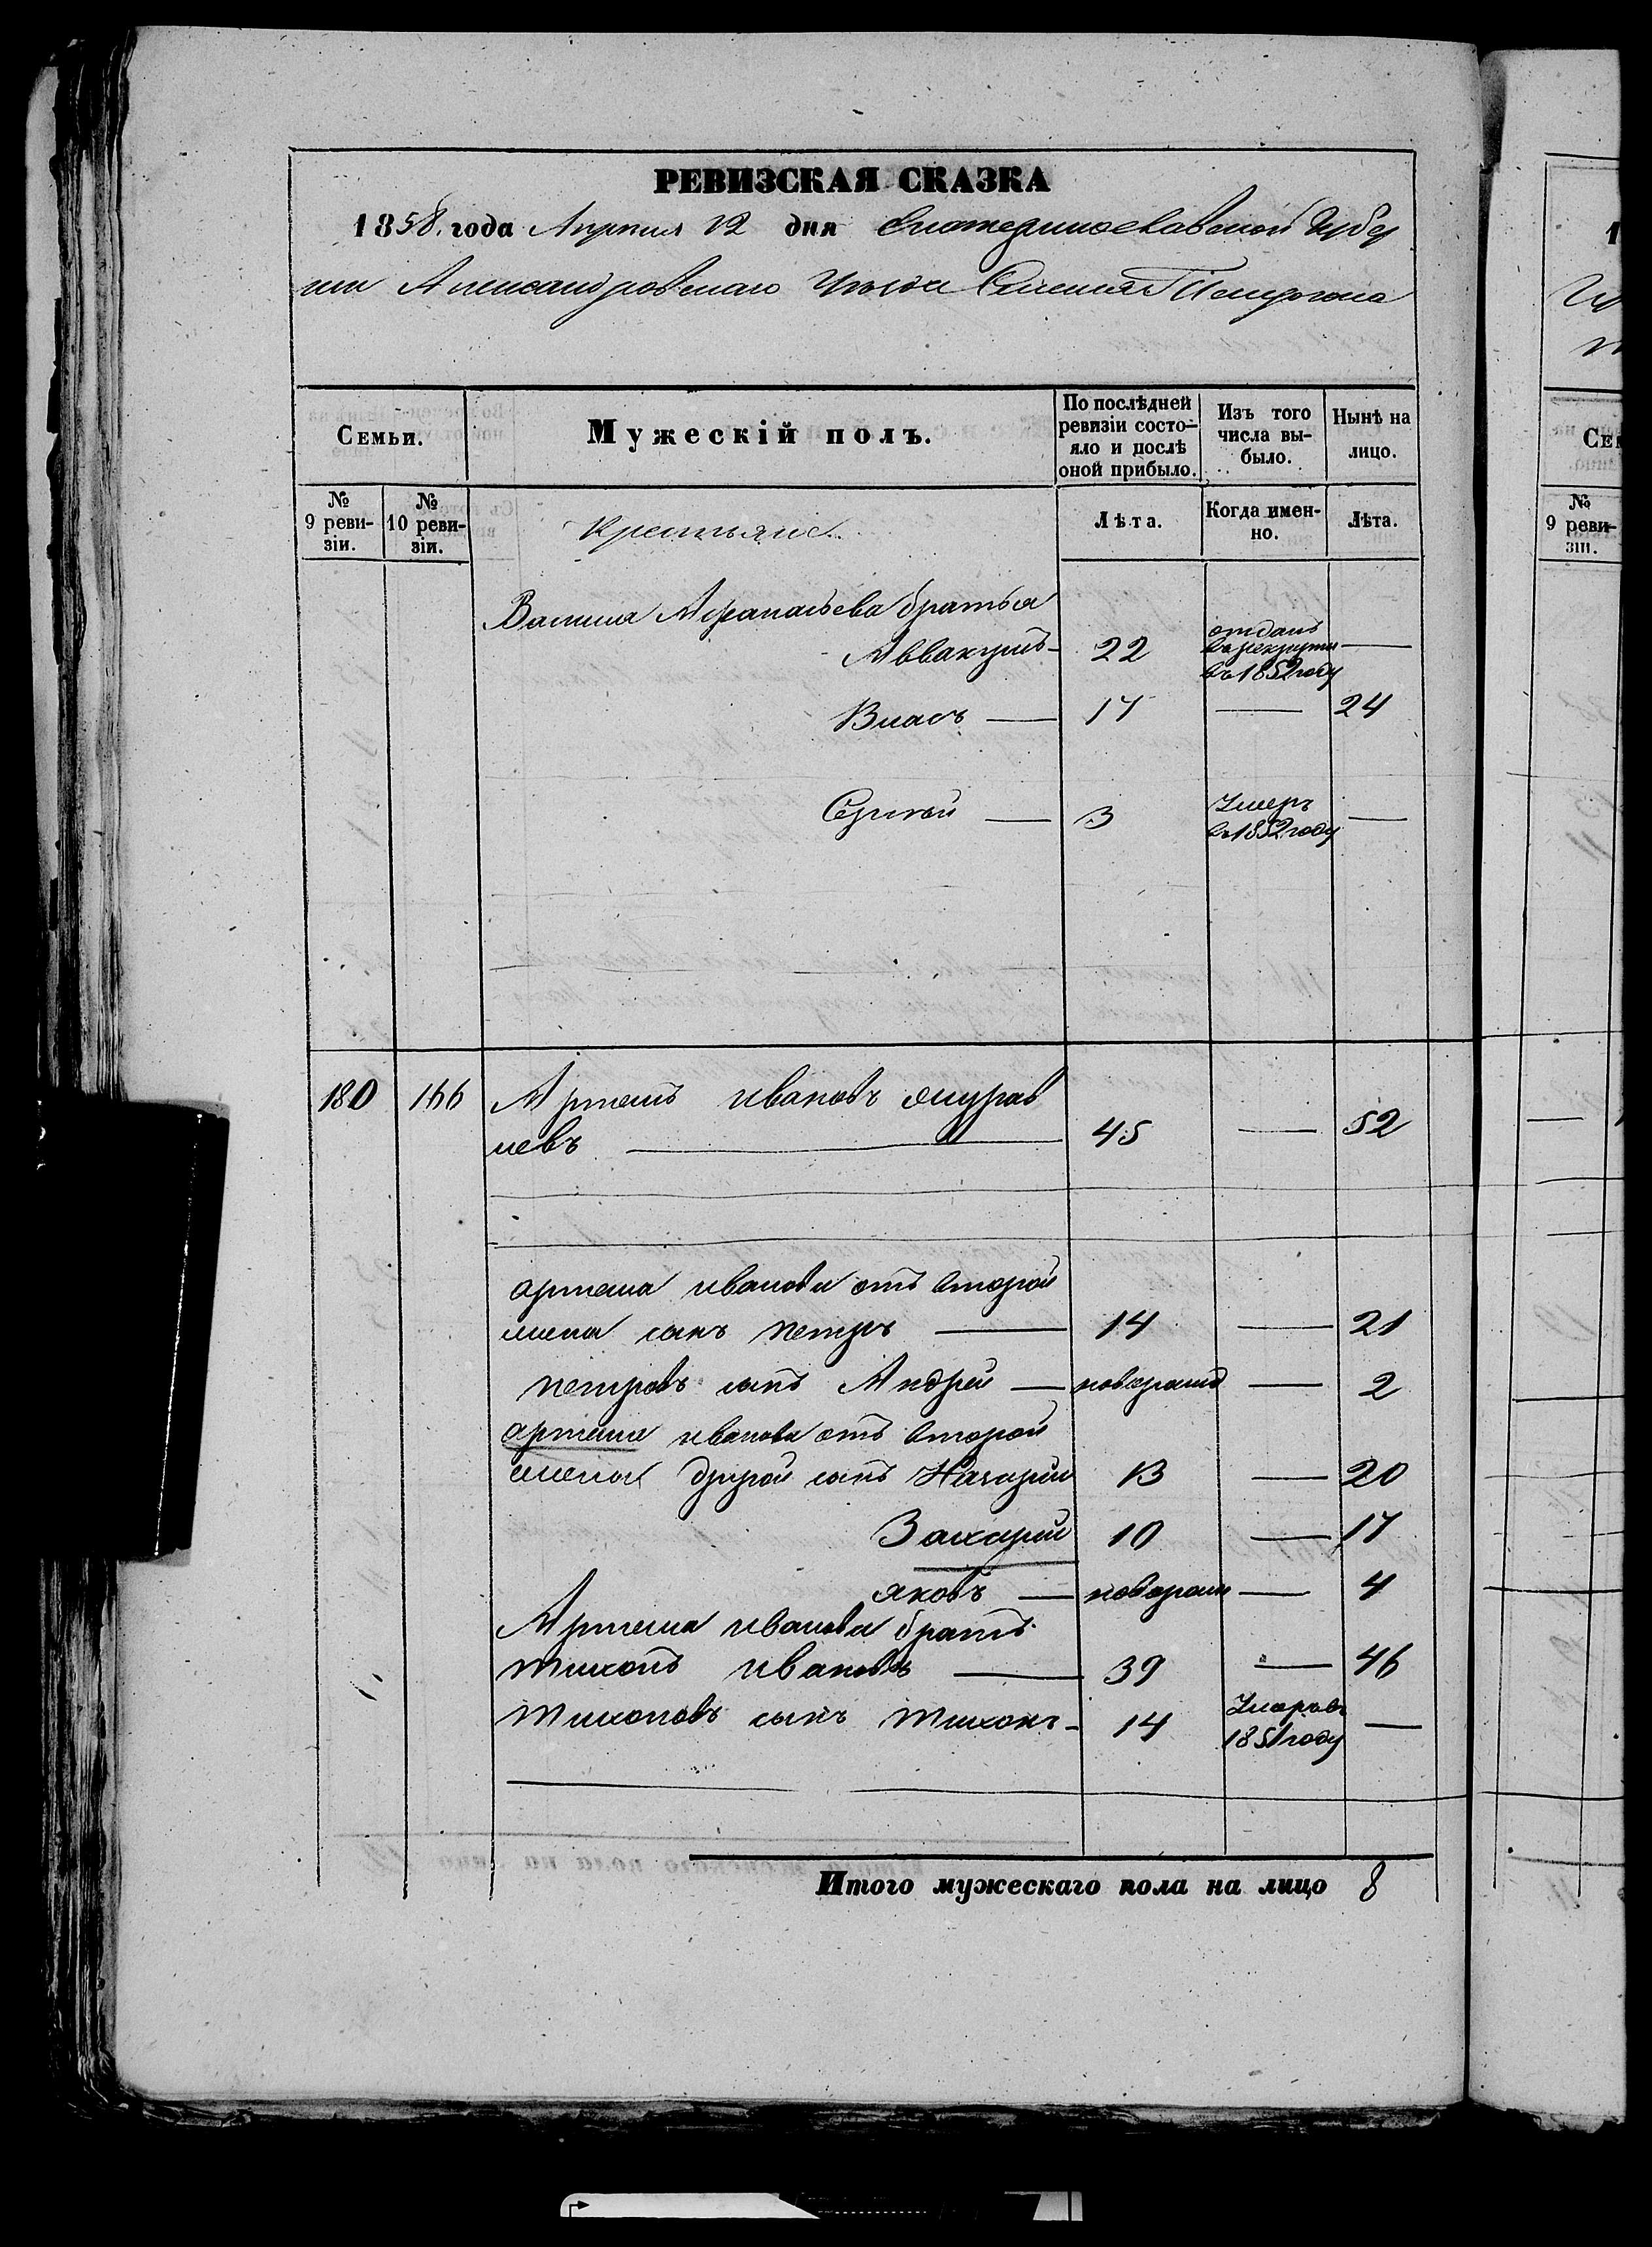 РЕВИЗСКАЯ СКАЗКА
1858. года Апреля 12 дня Екатеринославской Губер
нии Александровскаго Уезда Селения
Семьи.
Мужескій полъ.
По послѣдней ревизіи состо-яло и послѣ оной прибыло.
Изъ того числа вы-было.
Нынѣ на лицо.
№ 9 реви-зіи.
№ 10 реви-зіи.
Крестьяне.
Лѣта.
Когда имен-но.
Лѣта.
Афанасьева братья
Аввакумъ 22 отданъ в рекруты въ 1852 году —
Власъ — 17 — 24
Сергѣй — 3 Умеръ въ 1852 году —
180 166 Артемъ Ивановъ
левъ — 45 — 52
Артема Иванова отъ второй
жены сынъ Петръ — 14 — 21
Петровъ сынъ Андрей — новорожд — 2
Артема Иванова отъ второй
жены другой сынъ Назарий 13 — 20
Захарий 10 — 17
Яковъ — новорожд — 4
Артема Иванова братъ
Тихонъ Ивановъ — 39 — 46
Тихоновъ сынъ Тихонъ - 14 Умеръ въ 1851 году —
Итого мужескаго пола на лицо 8
1
Се
№ 9 реви-зіи.